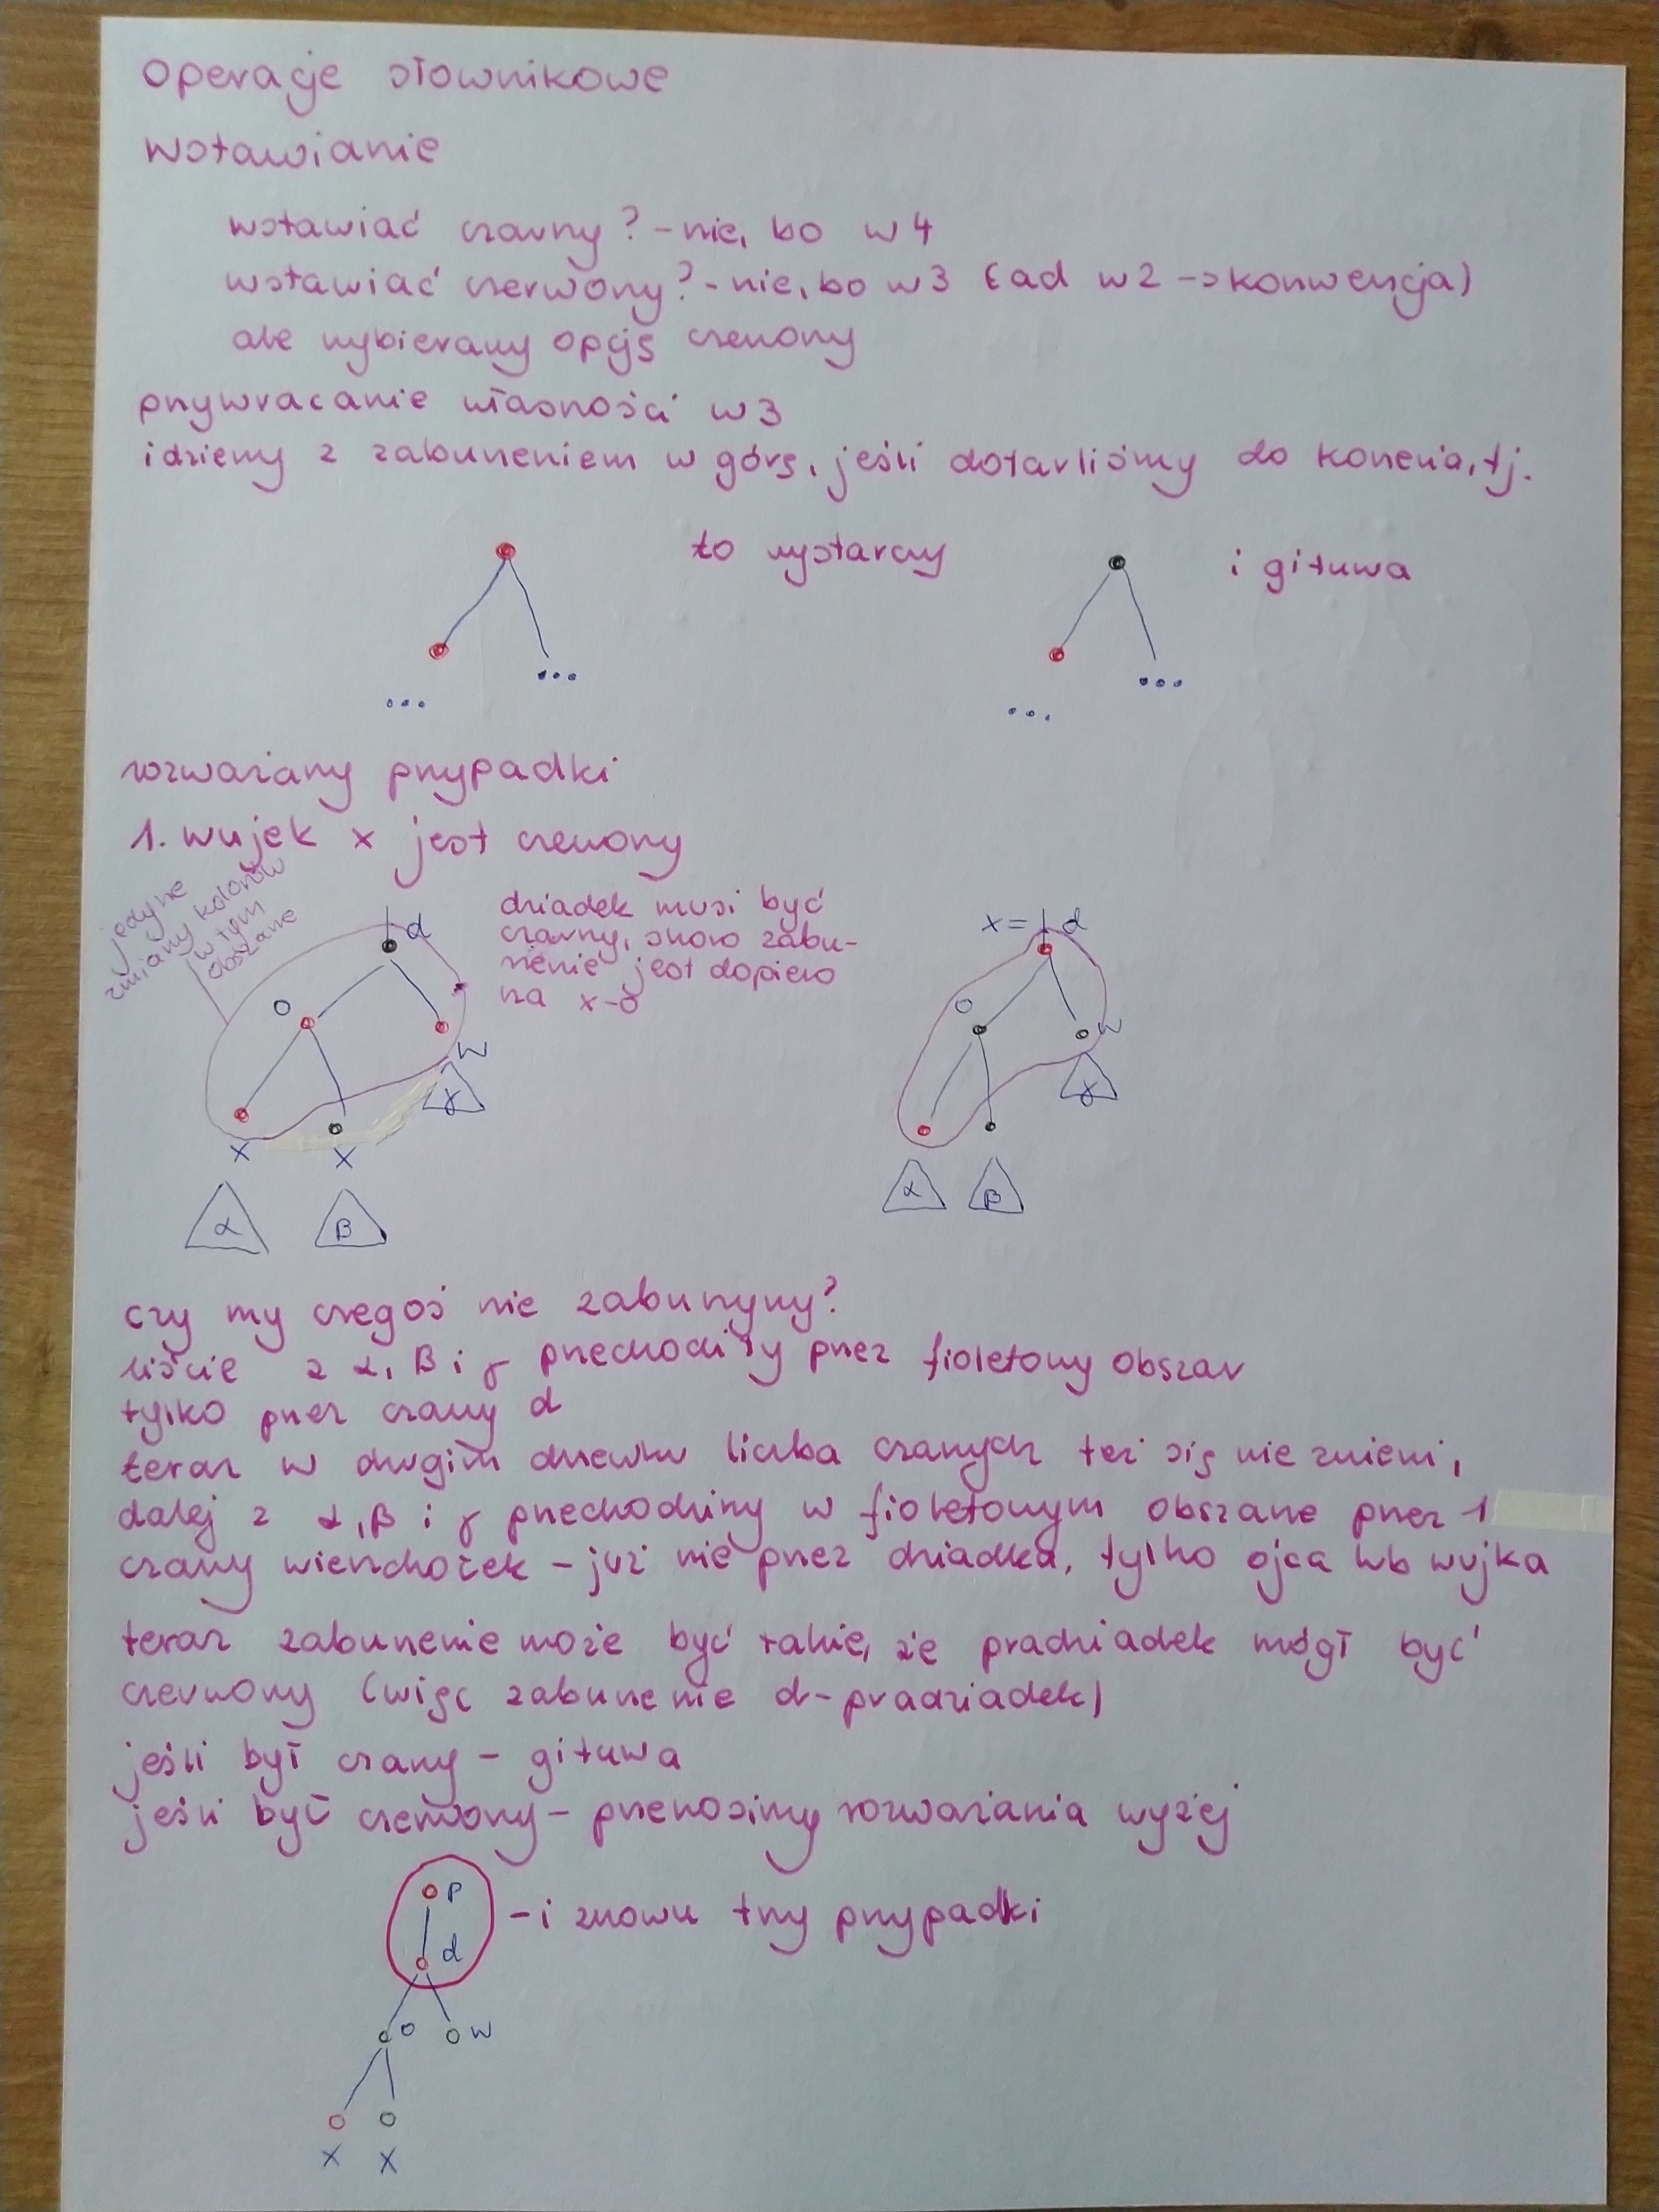 operacje słownikowe
wstawianie
wstawiać czarny? - nie, bo w4
wstawiać czerwony? - nie, bo w3 (ad w2 -> konwencja)
ale wybieramy opcję czerwony
przywracanie własności w3
idziemy z zaburzeniem w górę, jeśli dotarliśmy do korzenia, tj.
to wystarczy
i gituwa
...
...
...
...
rozważamy przypadki
1. wujek x jest czerwony
jedyne
zmiany kolorów
w tym
obszarze
dziadek musi być
czarny, skoro zabu-
rzenie jest dopiero
na x-o
d
o
w
x
x
α
β
γ
x = d
o
w
α
β
γ
czy my czegoś nie zaburzymy?
liście z α, β i γ przechodziły przez fioletowy obszar
tylko przez czarny d
teraz w drugim drzewku liczba czarnych też się nie zmieni,
dalej z α, β i γ przechodzimy w fioletowym obszarze przez 1
czarny wierzchołek - już nie przez dziadka, tylko ojca lub wujka
teraz zaburzenie może być takie, że pradziadek mógł być
czerwony (więc zaburzenie d-pradziadek)
jeśli był czarny - gituwa
jeśli był czerwony - przenosimy rozważania wyżej
p
- i znowu trzy przypadki
d
o
w
x
x